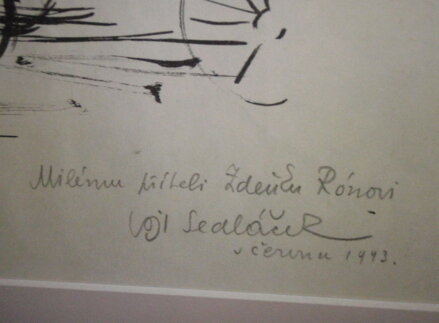 Milému příteli Zdeňku Rónovi
Vojt Sedláček
v červnu 1943.